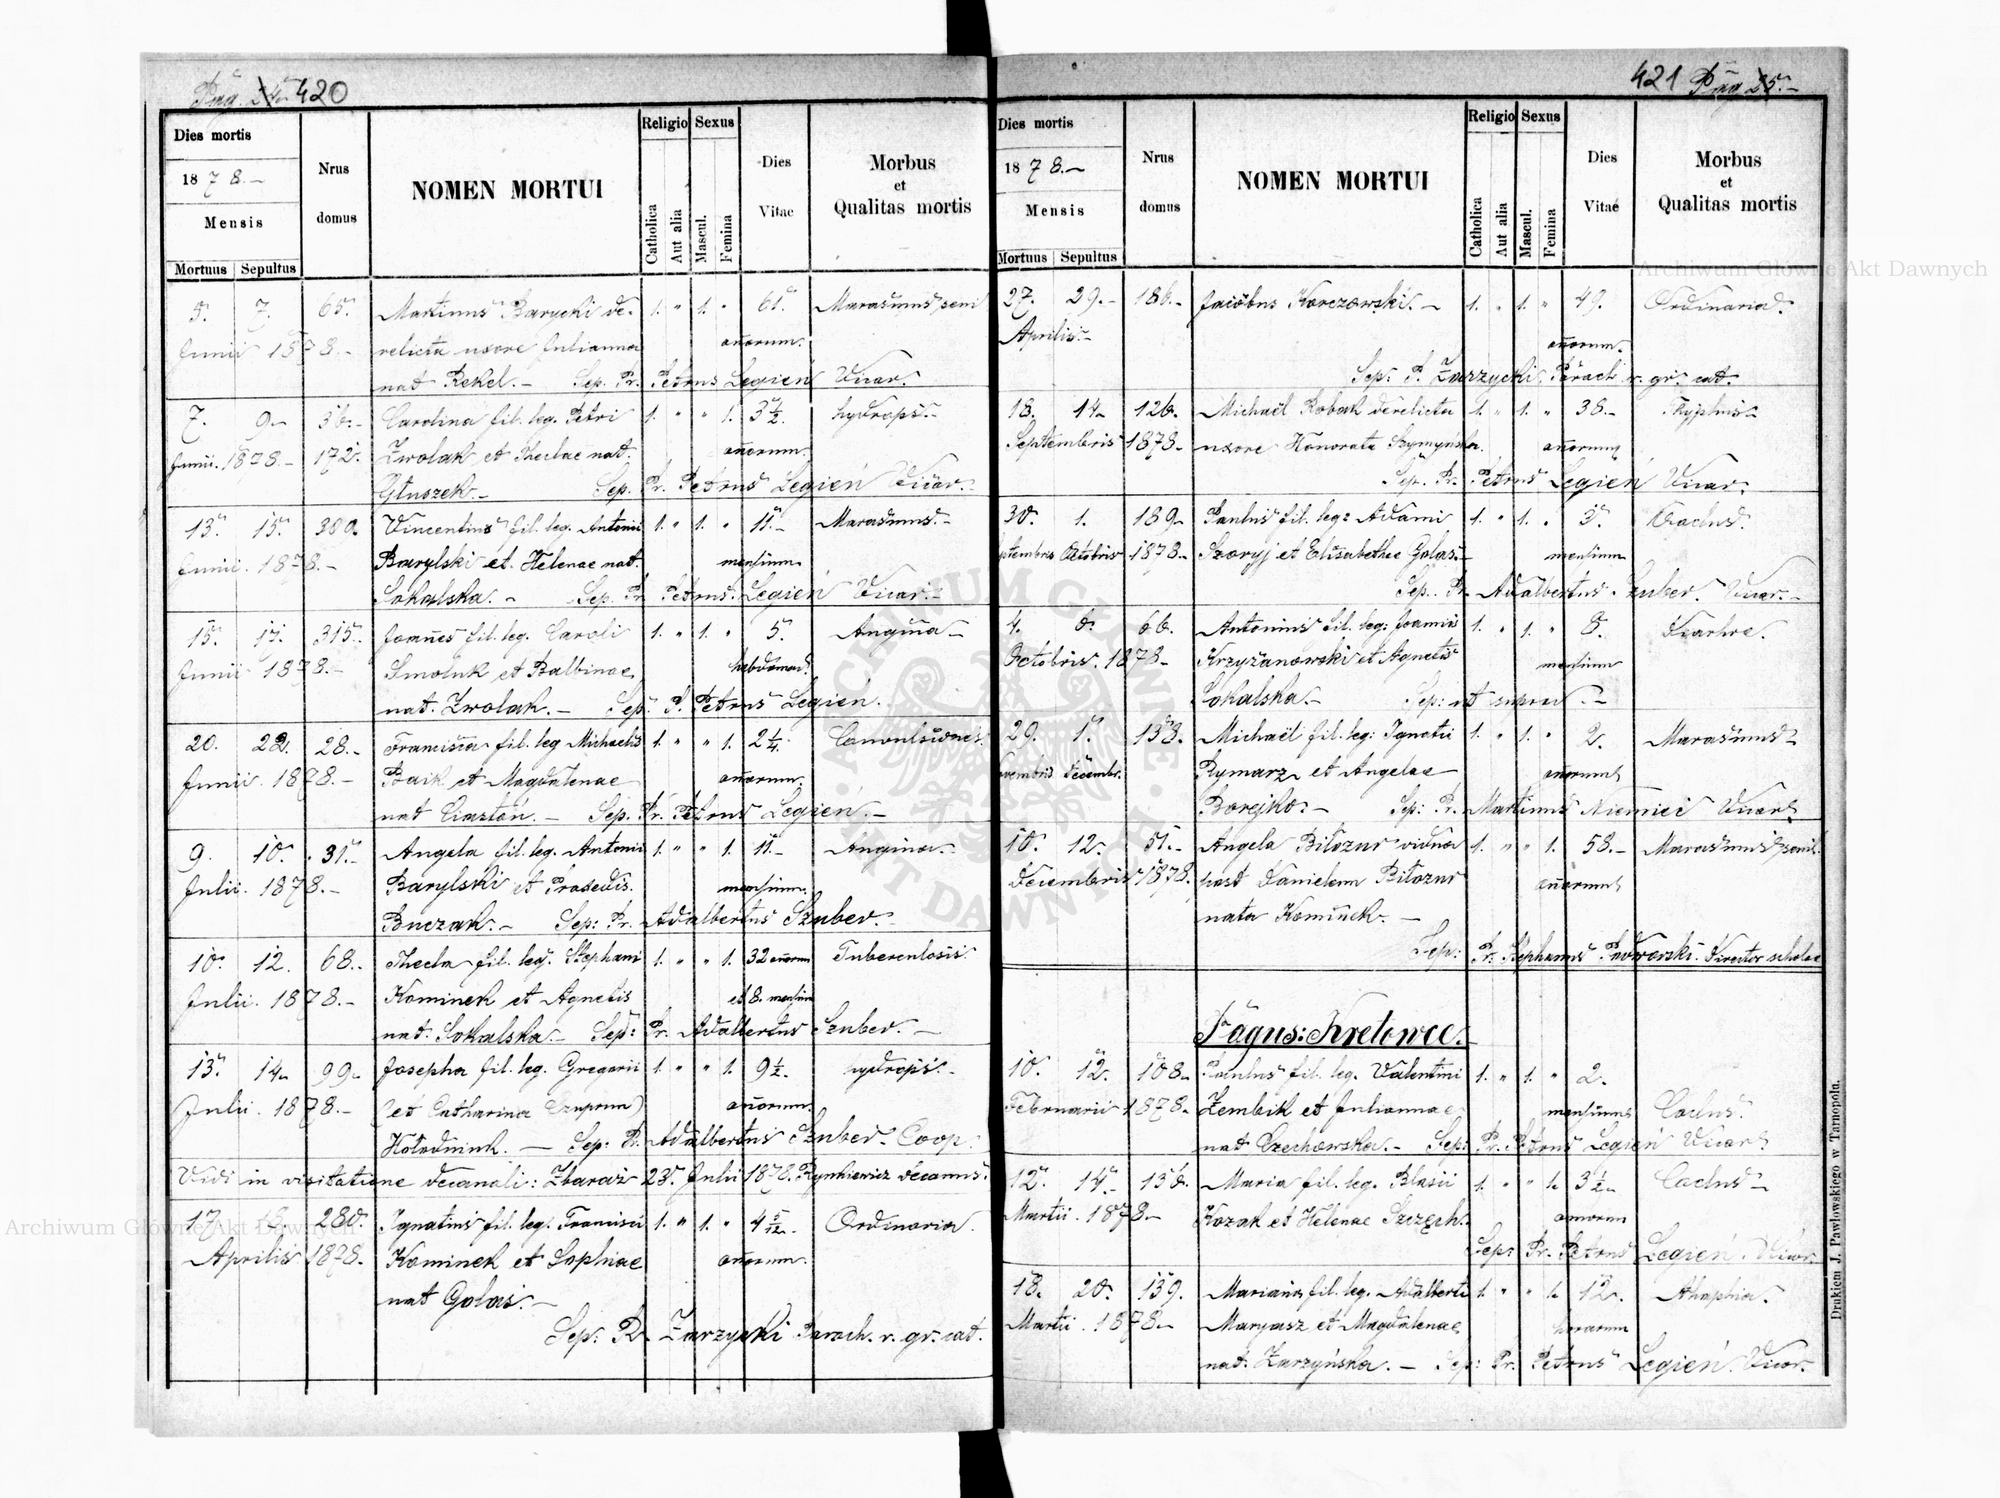 Pag. 24. 420
Dies mortis
1878.-
Mensis
Mortuus Sepultus
Nrus domus
NOMEN MORTUI
Religio
Catholica
Aut alia
Sexus
Mascul.
Femina
Dies Vitae
Morbus et Qualitas mortis
5. 7. 65. Martinus Barycki de- 1. " 1. " 61. Marasmus seni
Junii 1878.- relicta uxore Julianna añorum.
nat Rekel.- Sep. Pr. Petrus Legień Vicar.
7. 9.- 36.- Carolina fil. leg. Petri 1. " " 1. 3 1/2. hydrops.-
Junii. 1878.- 172. Zwolak et Theclae nat. añorum.
Głuszek.- Sep. Pr. Petrus Legień Vicar.-
13. 15. 300. Vincentius fil. leg. Antonii 1. " 1. " 11.- Marasmus.-
Junii. 1878.- Barylski et. Helenae nat. mensium
Sokalska.- Sep. Pr. Petrus. Legień Vicar.-
15. 17. 315. Joannes fil. leg. Caroli 1. " 1. " 5. Angina-
Junii 1878.- Smoluk et Balbinae hebdomad.
nat. Zwolak.- Sep. P. Petrus Legień.
20. 22. 28.- fil. leg Michaelis 1. " " 1. 2 1/4. Convulsiones.
Junii. 1878.- Baik et Magdalenae añorum.
nat Ciasztoń.- Sep. Pr. Petrus Legień.-
9. 10. 31.- Angela fil. leg. Antonii 1. " " 1. 11.- Angina.-
Julii. 1878.- Barylski et Praxedis. mensium.
Buczak.- Sep: Pr. Adalbertus Szuber.-
10. 12. 68.- Thecla fil. leg. Stephani 1. " " 1. 32 añorum Tuberculosis.
Julii. 1878.- Kominek et Agnetis et 8. mensium
nat. Sokalska.- Sep: Pr. Adalbertus Szuber.-
13. 14. 99.- Josepha fil. leg. Gregorii 1. " " 1. 9 1/2. hydrops.-
Julii. 1878.- (et Catharina Czuprun) añorum.
Hołodniuk.- Sep: Pr. Adalbertus Szuber. Coop.
Vidi in visitatione decanali: Zbaraż 23. Julii 1878. Rynkiewicz decanus.
17. 18. 280. Ignatius fil. leg. Francisci 1. " 1. " 4 5/12. Ordinaria.
Aprilis 1878. Kominek et Sophiae añorum.
nat Golas.-
Sep: R. Zarzycki Paroch. r. gr. cat.
421 Pag 25.-
Dies mortis
1878.-
Mensis
Mortuus Sepultus
Nrus domus
NOMEN MORTUI
Religio
Catholica
Aut alia
Sexus
Mascul.
Femina
Dies Vitae
Morbus et Qualitas mortis
27. 29.- 186.- Jacobus Korczowski.- 1. " 1. " 49. Ordinaria.
Aprilis.- añorum.
Sep: P. Zarzycki Paroch r. gr. cat.
13. 14. 126. Michaël Robak derelicta 1. " 1. " 38.- Typhus-
Septembris 1878.- uxore Honorata añorum
Sep. Pr. Petrus Legień Vicar.
30. 1. 189. Paulus fil. leg: Adami 1. " 1. " 3.
Octobris 1878- Szoryj et Elisabethae Golas.- mensium
Sep. Pr. Adalbertus Szuber. Vicar.-
4. 6. 66. Antonius fil. leg: Joannis 1. " 1. " 8. Diarhoe.
Octobris. 1878- Krzyżanowski et Agnetis mensium
Sokalska.- Sep: ut supra.-
29. 1. 133. Michaël fil. leg: Ignatii 1. " 1. " 2. Marasmus-
Decembr. Rymarz et Angelae añorum
Borejko.- Sep: Pr. Martinus Niemiec Vicar.
10. 12. 51.- Angela Biłozur vidua 1. " " 1. 58.- Marasmus senil.
Decembris 1878. post Danielem Biłozur añorum
nata Kominek.-
Sep: Pr. Stephanus Director scholae
Pagus: Kretowce.
10. 12. 108.- Paulus fil. leg. Valentini 1. " 1. " 2.
Februarii 1878. Zembik et Juliannae mensium Coctus.
nat Czechowska.- Sep: Pr. Petrus Legień Vicar.
12. 14. 138. Maria fil. leg. Blasii 1. " " 1. 3 1/2. Coctus-
Martii. 1878.- Kozak et Helenae Szczęch. annorum
Sep: Pr. Petrus Legień. Vicar.
18. 20. 139. Mariana fil. leg. Adalberti 1. " " 1. 12.
Martii. 1878.- Maryasz et Magdalenae horarum
nat. Zarzyńska.- Sep: Pr. Petrus Legień. Vicar.
Drukiem J. Pawłowskiego w Tarnopolu.
Archiwum Główne Akt Dawnych
Archiwum Główne Akt Dawnych
ARCHIWUM GŁÓWNE AKT DAWNYCH